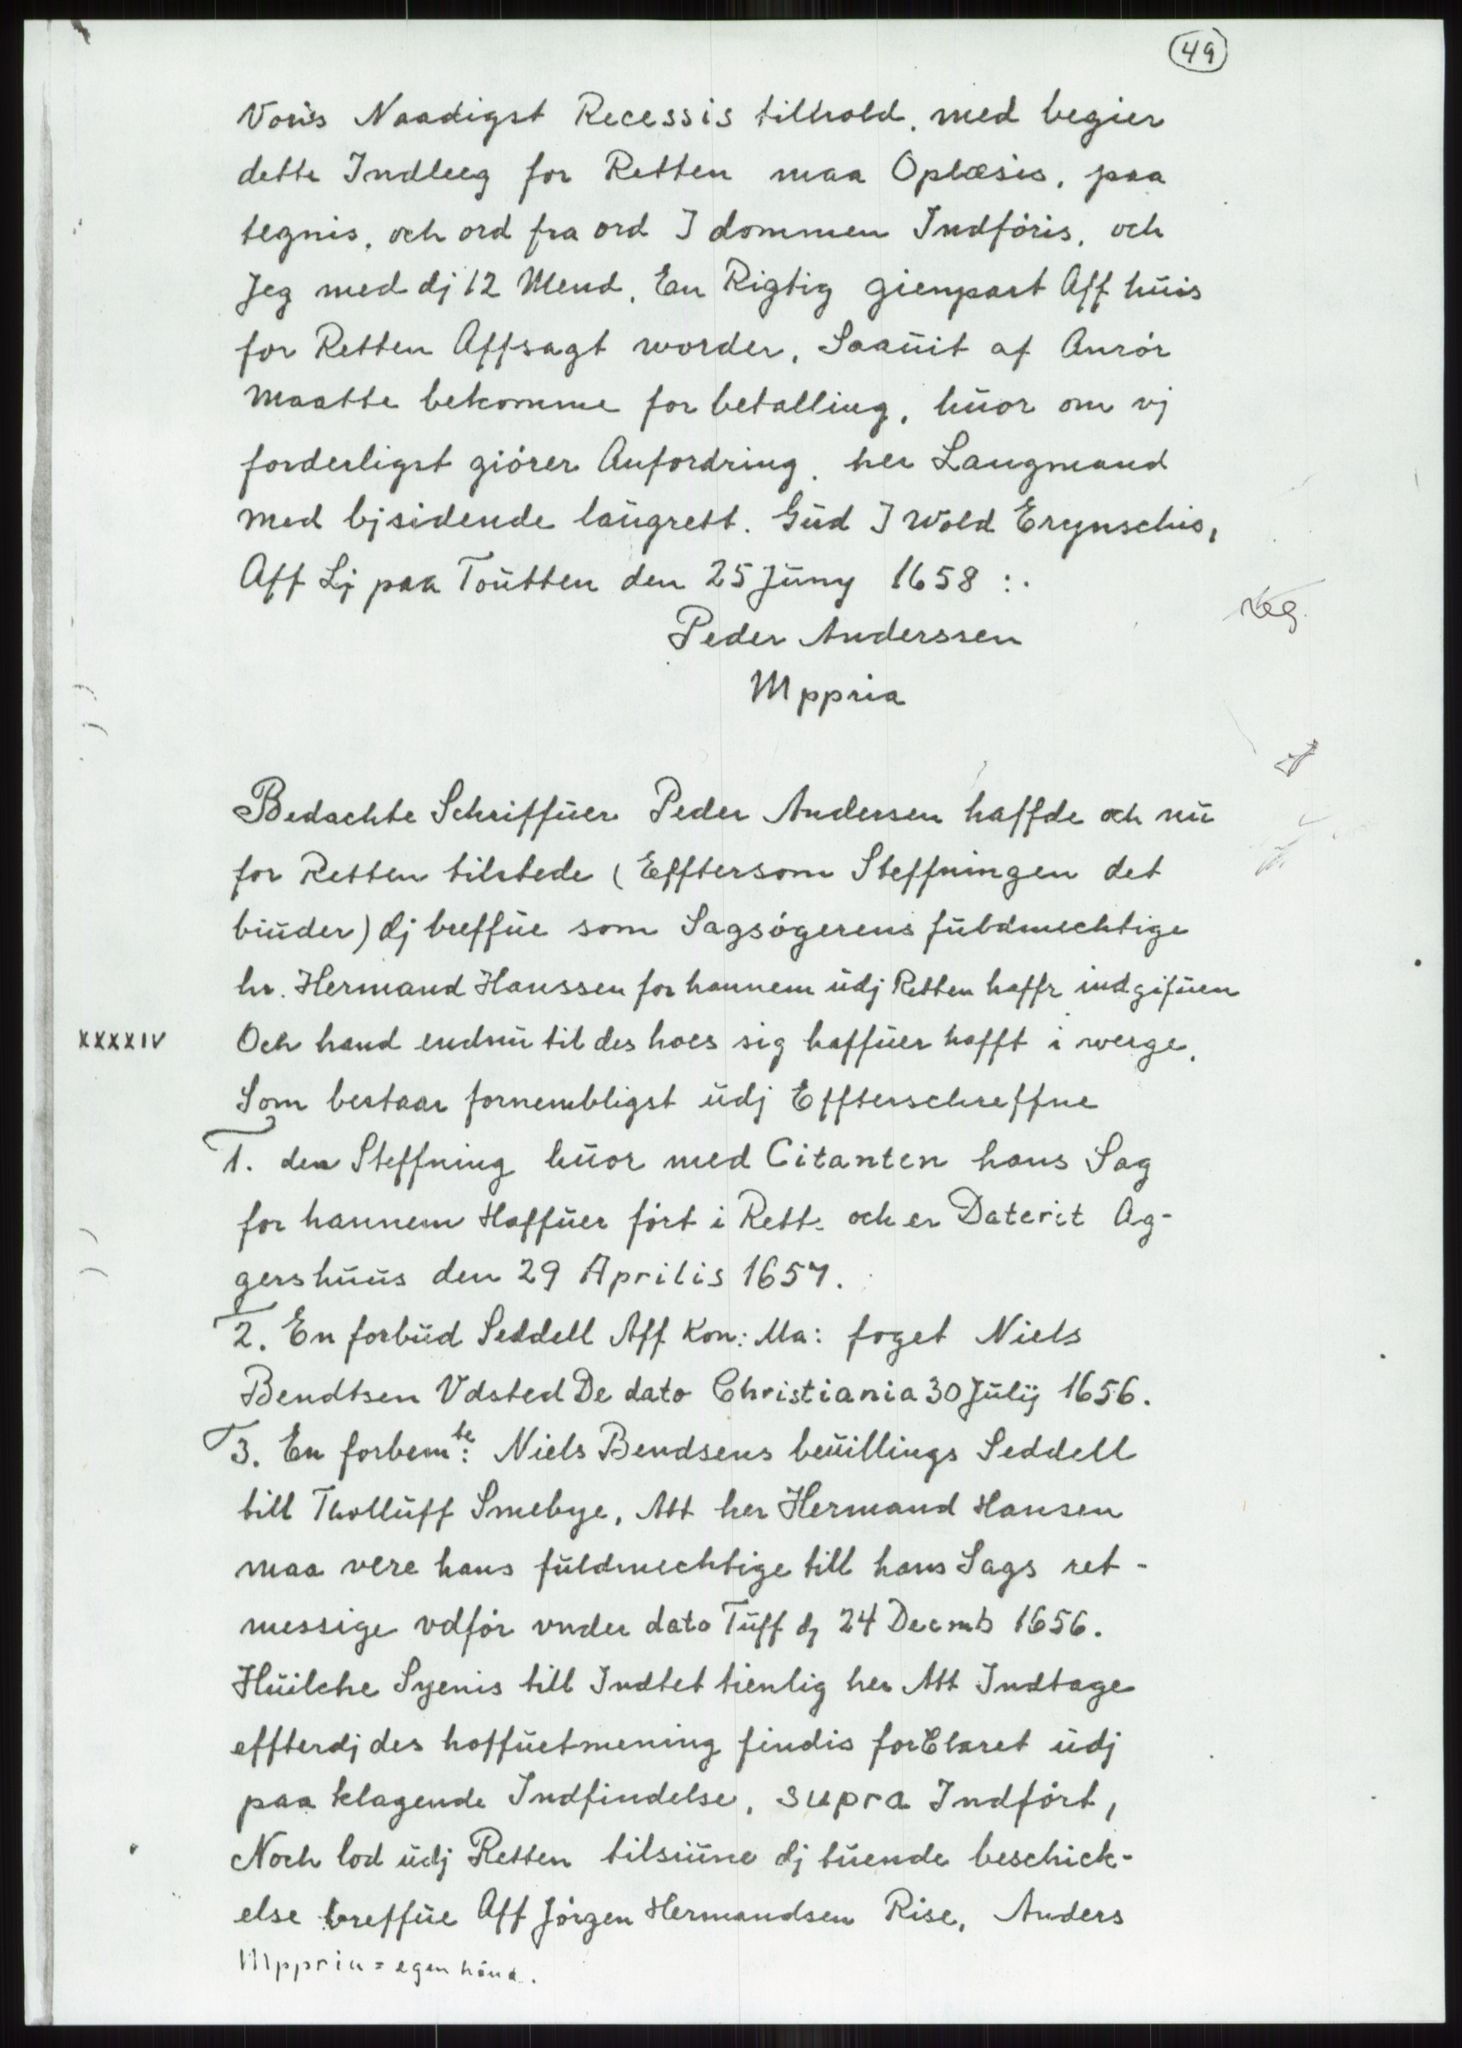 49
Voris Naadigst Recessis tilhold, med begier
dette Indleeg for Retten maa Oplæsis, paa
tegnis, och ord fra ord I dommen Indföris, och
Jeg med dj 12 Mend, En Rigtig gienpart Aff hüis
for Retten Affsagt worder, Saaüit af Anrör
maatte bekomme for betalling, hüor om vj
forderligst giörer Anfordring, her Laugmand
med bjsidende laügrett. Güd I Wold Erynschis,
Aff Lj paa Toütten den 25 Jüny 1658 :.
Peder Anderssen
Mppria
Bedachte Schriffüer Peder Andersen haffde och nü
for Retten tilstede (Efftersom Steffningen det
biüder) dj breffüe som Sagsögerens füldmechtige
hr. Hermand Hanssen for hannem üdj Retten haffr indgifüen
XXXXIV
Och hand endnü til des hoes sig haffüer hafft i werge,
Som bestaar fornembligst üdj Effterschreffne
1. den Steffning hüor med Citanten hans Sag
for hannem Haffüer fört i Rett. och er Daterit Ag-
gershüüs den 29 Aprilis 1657.
2. En forbüd Seddell Aff Kon: Ma: foget Niels
Bendtsen Vdsted De dato Christiania 30 Jülij 1656.
3. En forbemte: Niels Bendsens beüillings Seddell
till Tholluff Smebye, Att her Hermand Hansen
maa vere hans füldmechtige till hans Sags ret-
messige vdför vnder dato Tüff dj 24 Decmb 1656.
Hüilche Syenis till Indtet tienlig her Att Indtage
effterdj des hoffüetmening findis forClaret üdj
paa klagende Indfindelse, supra Indfört,
Noch lod üdj Retten tilsiüne dj tüende beschick-
else breffüe Aff Jörgen Hermandsen Rise, Anders
Mppria = egen hånd.